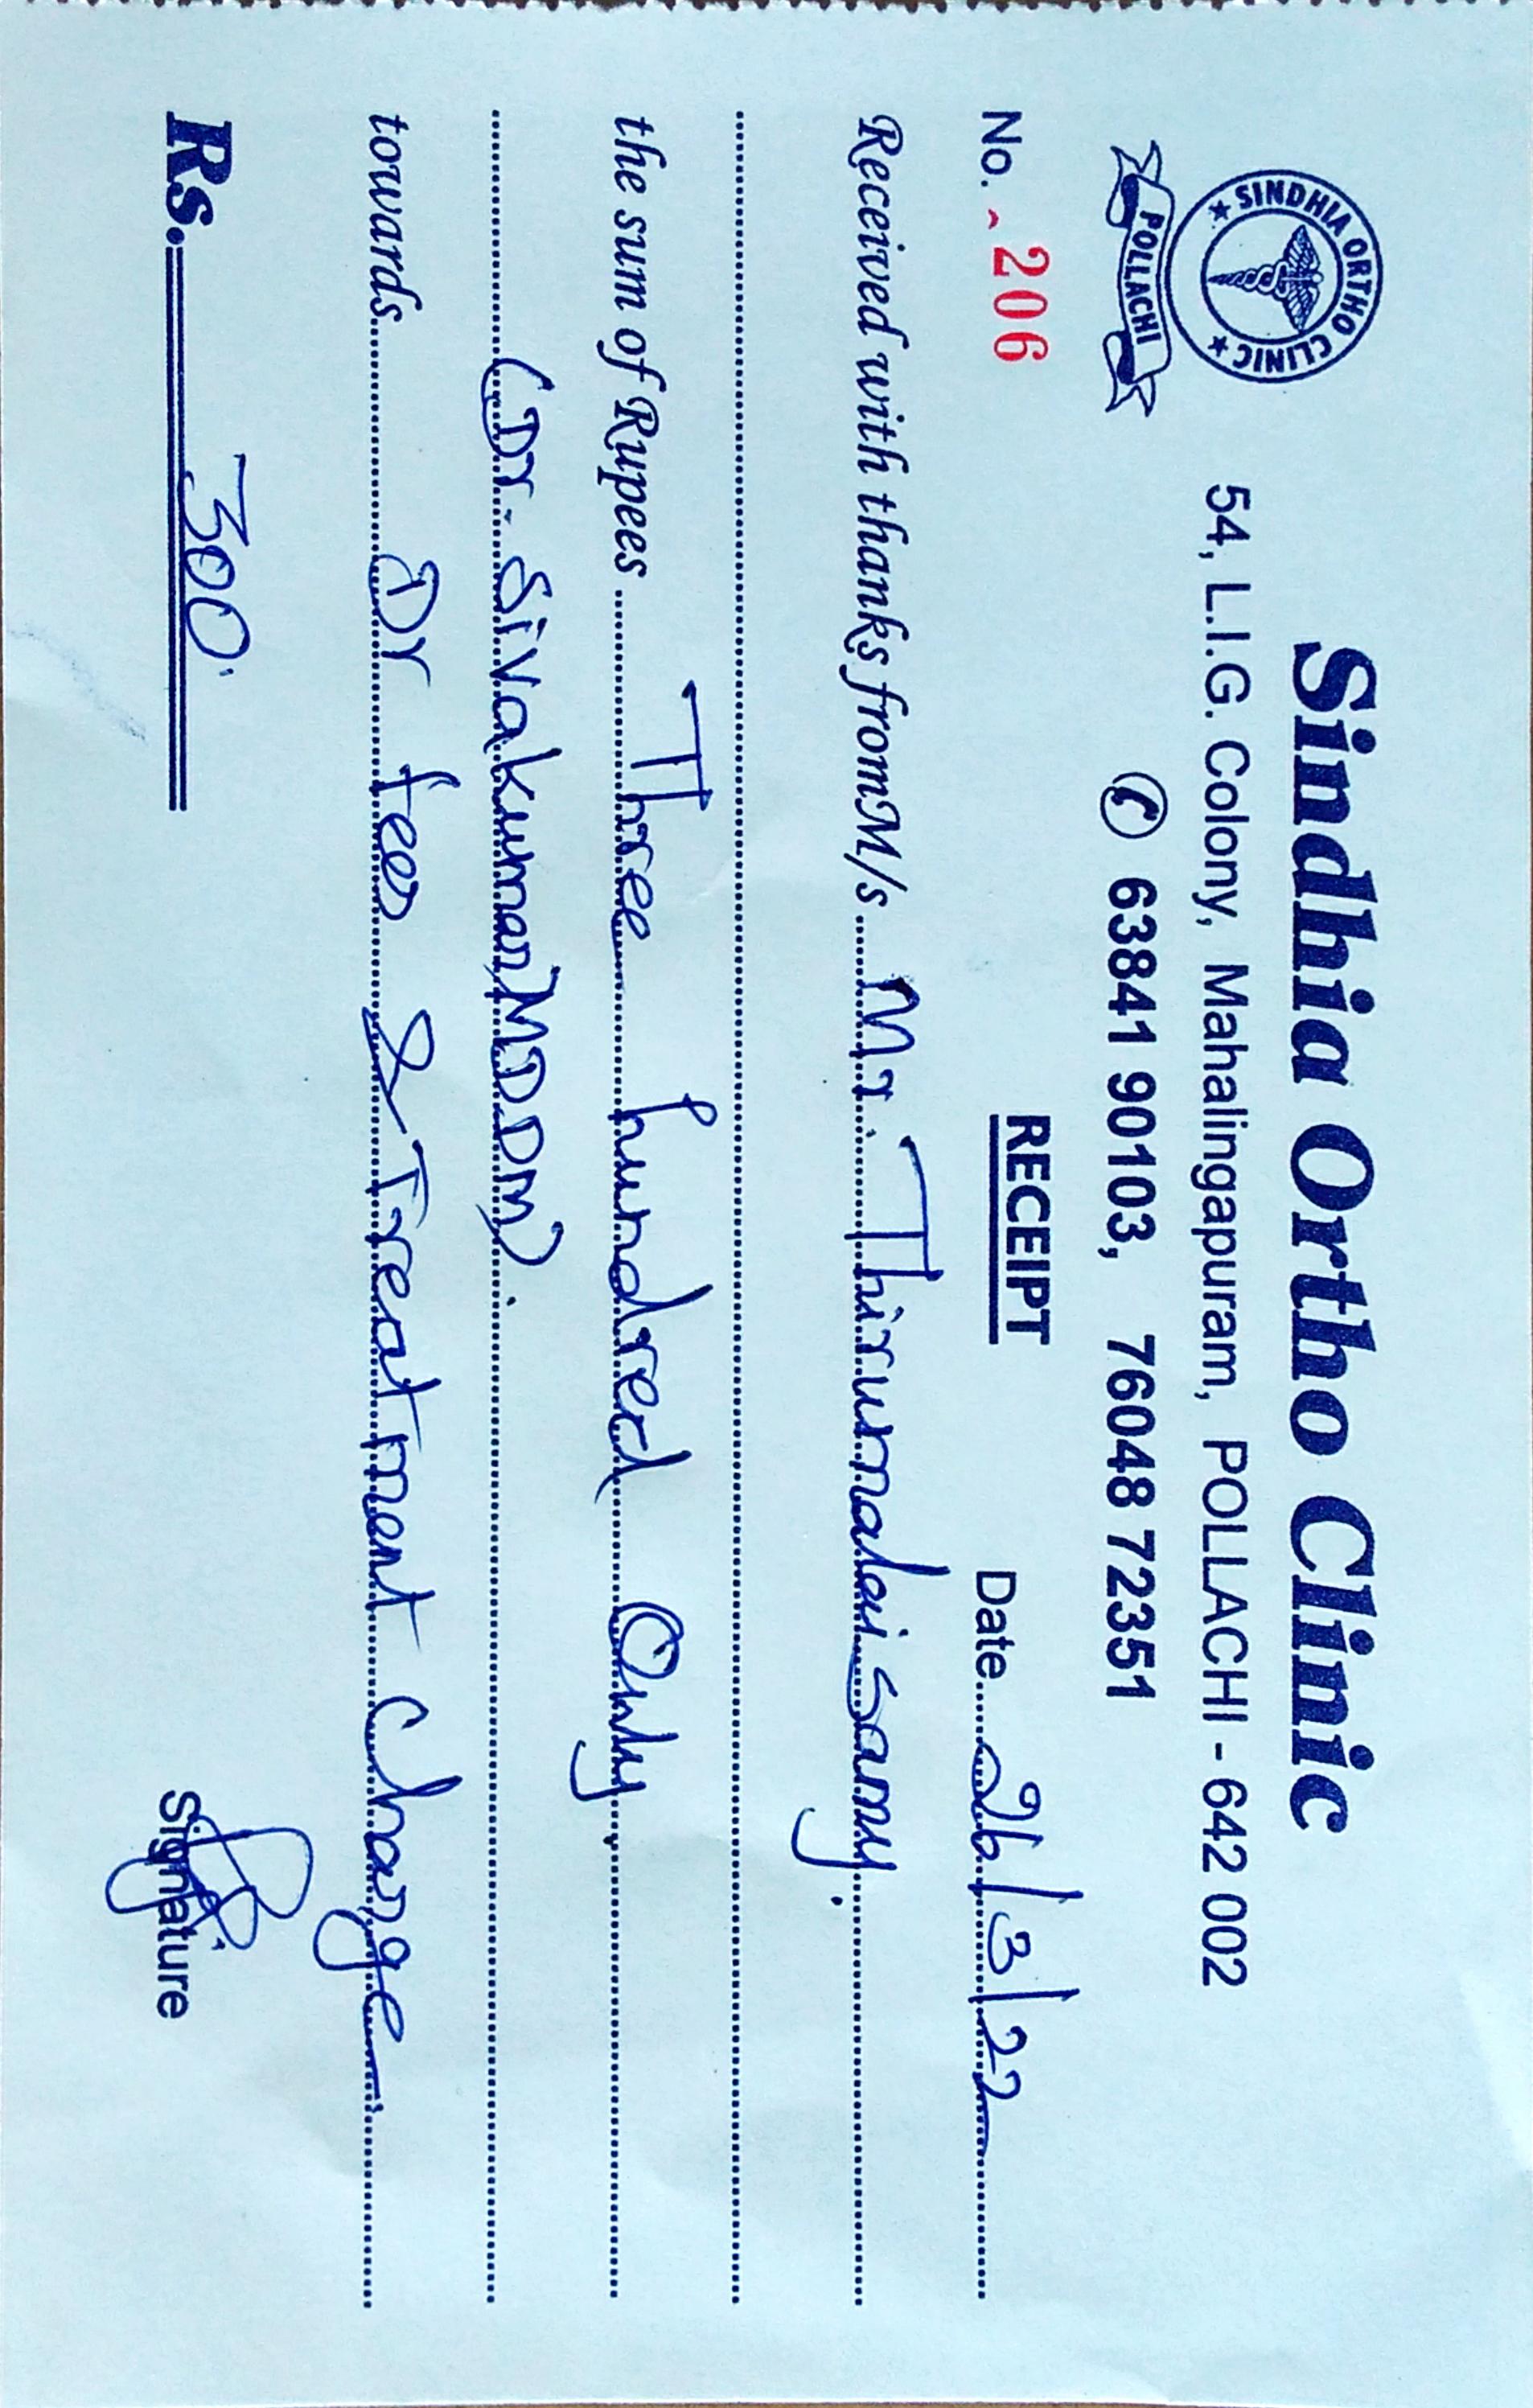 SINDHIA ORTHO CLINIC
POLLACHI
Sindhia Ortho Clinic
54, L.I.G. Colony, Mahalingapuram, POLLACHI - 642 002
63841 90103, 76048 72351
RECEIPT
No. 206 Date 26/3/22
Received with thanks from M/s Mr. Thirumalaisamy.
the sum of Rupees Three hundred Only.
(Dr. Sivakumar, MDDM).
towards Dr fees & Treatment Charge.
Rs. 300.
Signature